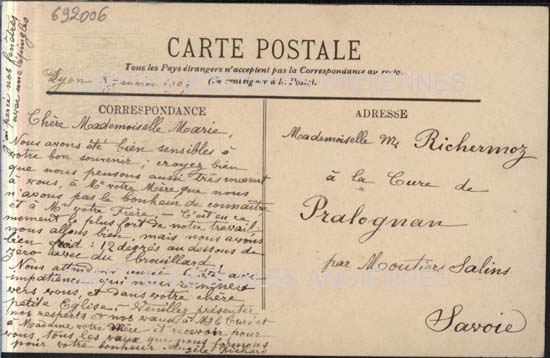 692006
J'ai percé nos fenêtres
avec une épingle
CARTE POSTALE
Tous les Pays étrangers n'acceptent pas la Correspondance au recto.
(Se renseigner à la Poste).
Lyon 3 Janvier
CORRESPONDANCE
Chère Mademoiselle Marie,
Nous avons été bien sensibles à
votre bon souvenir ; croyez bien
que nous pensons aussi très souvent
à vous, à Me votre Mère que nous
n'avons pas le bonheur de connaître
et à Mr votre Frère. — C'est en ce
moment le plus fort de notre travail ;
nous allons bien, mais nous avons
bien froid : 12 degrés au dessous de
zéro avec du brouillard.
Nous attendons
impatience qui nous ramènera
vers vous, et dans votre chère
petite Eglise. — Veuillez présenter
nos respects & nos vœux à Mr le Curé et
à Madame votre Mère et recevoir pour
vous, tous les vœux que nous formons
pour votre bonheur. Angèle Richard
ADRESSE
Mademoiselle M. Richermoz
à la Cure de
Pralognan
par Moutiers Salins
Savoie
CARTES ANCIENNES